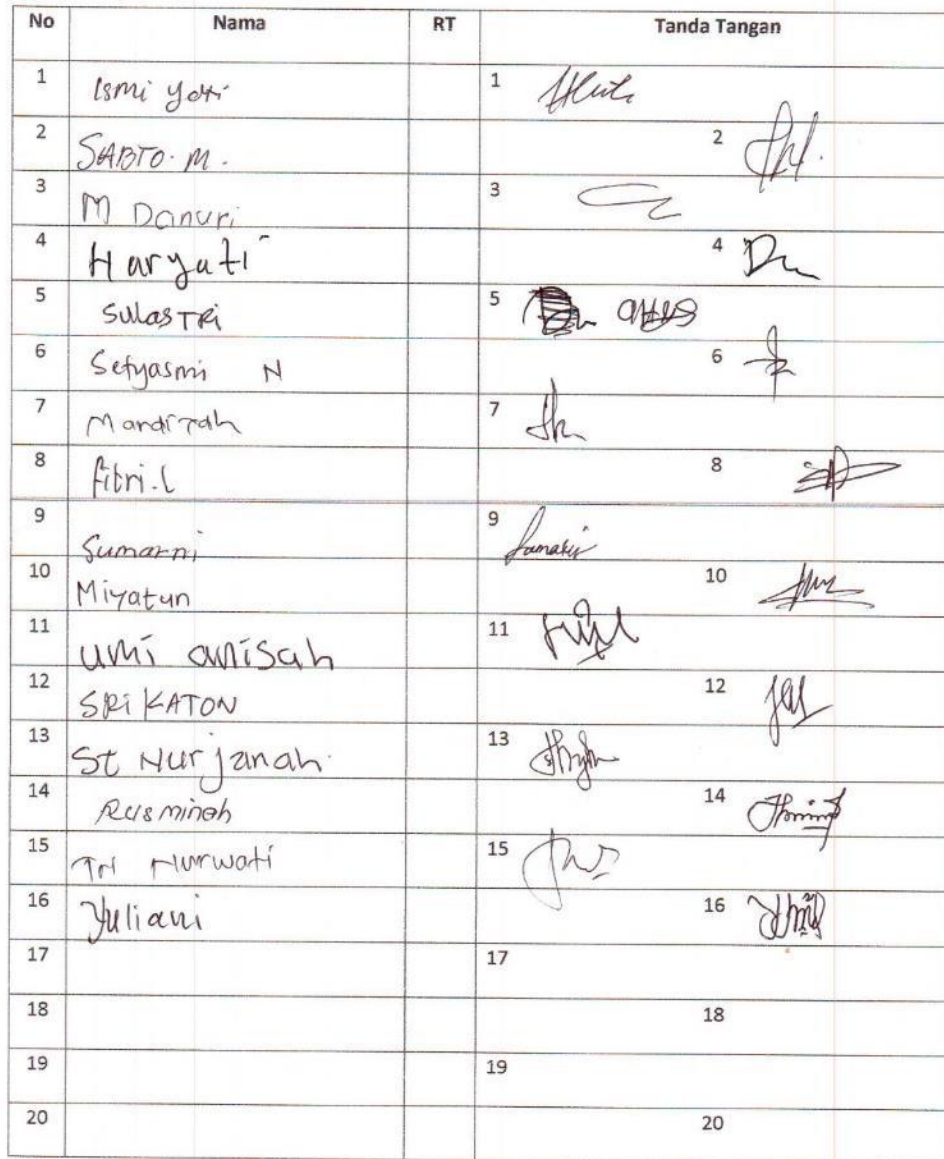 No Nama RT Tanda Tangan
1 Ismi Yati 1
2 SABTO. M. 2
3 M Danuri 3
4 Haryati 4
5 SulasTRi 5
6 Setyasmi N 6
7 7
8 fitri.L 8
9 Sumarni 9
10 Miyatun 10
11 umi anisah 11
12 SRi KATON 12
13 St Nurjanah 13
14 Rusminah 14
15 Nurwati 15
16 Yuliani 16
17 17
18 18
19 19
20 20